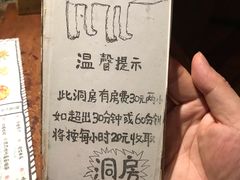 温馨提示
此洞房有房费30元两小
如超出30分钟或60分钟
将按每小时20元收取
洞房